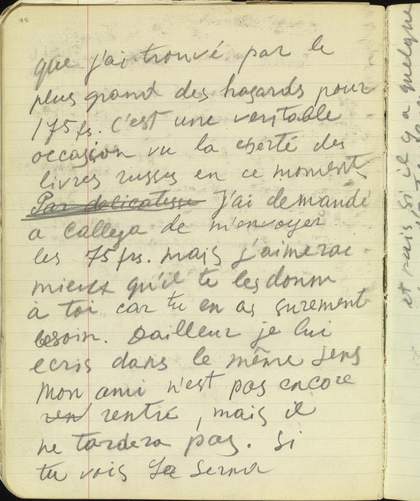 que j'ai trouvé par le
plus grand des hasards pour
175 frs. C'est une veritable
occasion vu la cherté des
livres russes en ce moment
Par delicatesse J'ai demandé
a Calleja de m'envoyer
les 75 frs. mais j'aimerai
mieux qu'il te les donne
à toi car tu en as surement
besoin. Dailleur je lui
ecris dans le même sens
Mon ami n'est pas encore
ren rentré, mais il
ne tardera pas. Si
tu vois La Serna
et puis si il y a quelque